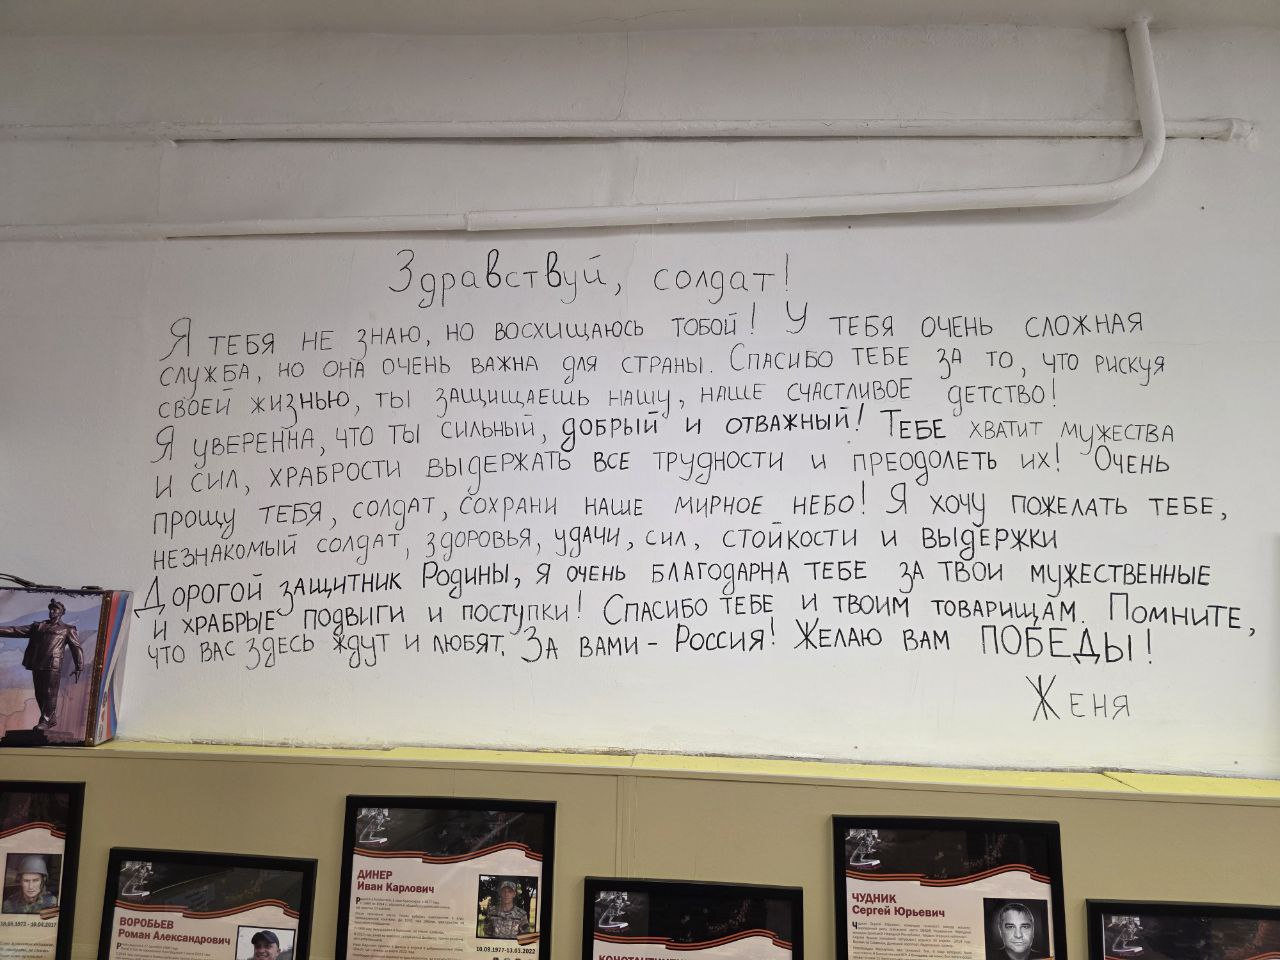 Здравствуй, солдат!
Я тебя не знаю, но восхищаюсь тобой! У тебя очень сложная
служба, но она очень важна для страны. Спасибо тебе за то, что рискуя
своей жизнью, ты защищаешь нашу, наше счастливое детство!
Я уверенна, что ты сильный, добрый и отважный! Тебе хватит мужества
и сил, храбрости выдержать все трудности и преодолеть их! Очень
прощу тебя, солдат, сохрани наше мирное небо! Я хочу пожелать тебе,
незнакомый солдат, здоровья, удачи, сил, стойкости и выдержки
Дорогой защитник Родины, я очень благодарна тебе за твои мужественные
и храбрые подвиги и поступки! Спасибо тебе и твоим товарищам. Помните,
что вас здесь ждут и любят. За вами - Россия! Желаю вам ПОБЕДЫ!
Женя
ДИНЕР
Иван Карлович
10.09.1977-13.03.2022
ЧУДНИК
Сергей Юрьевич
ВОРОБЬЕВ
Роман Александрович